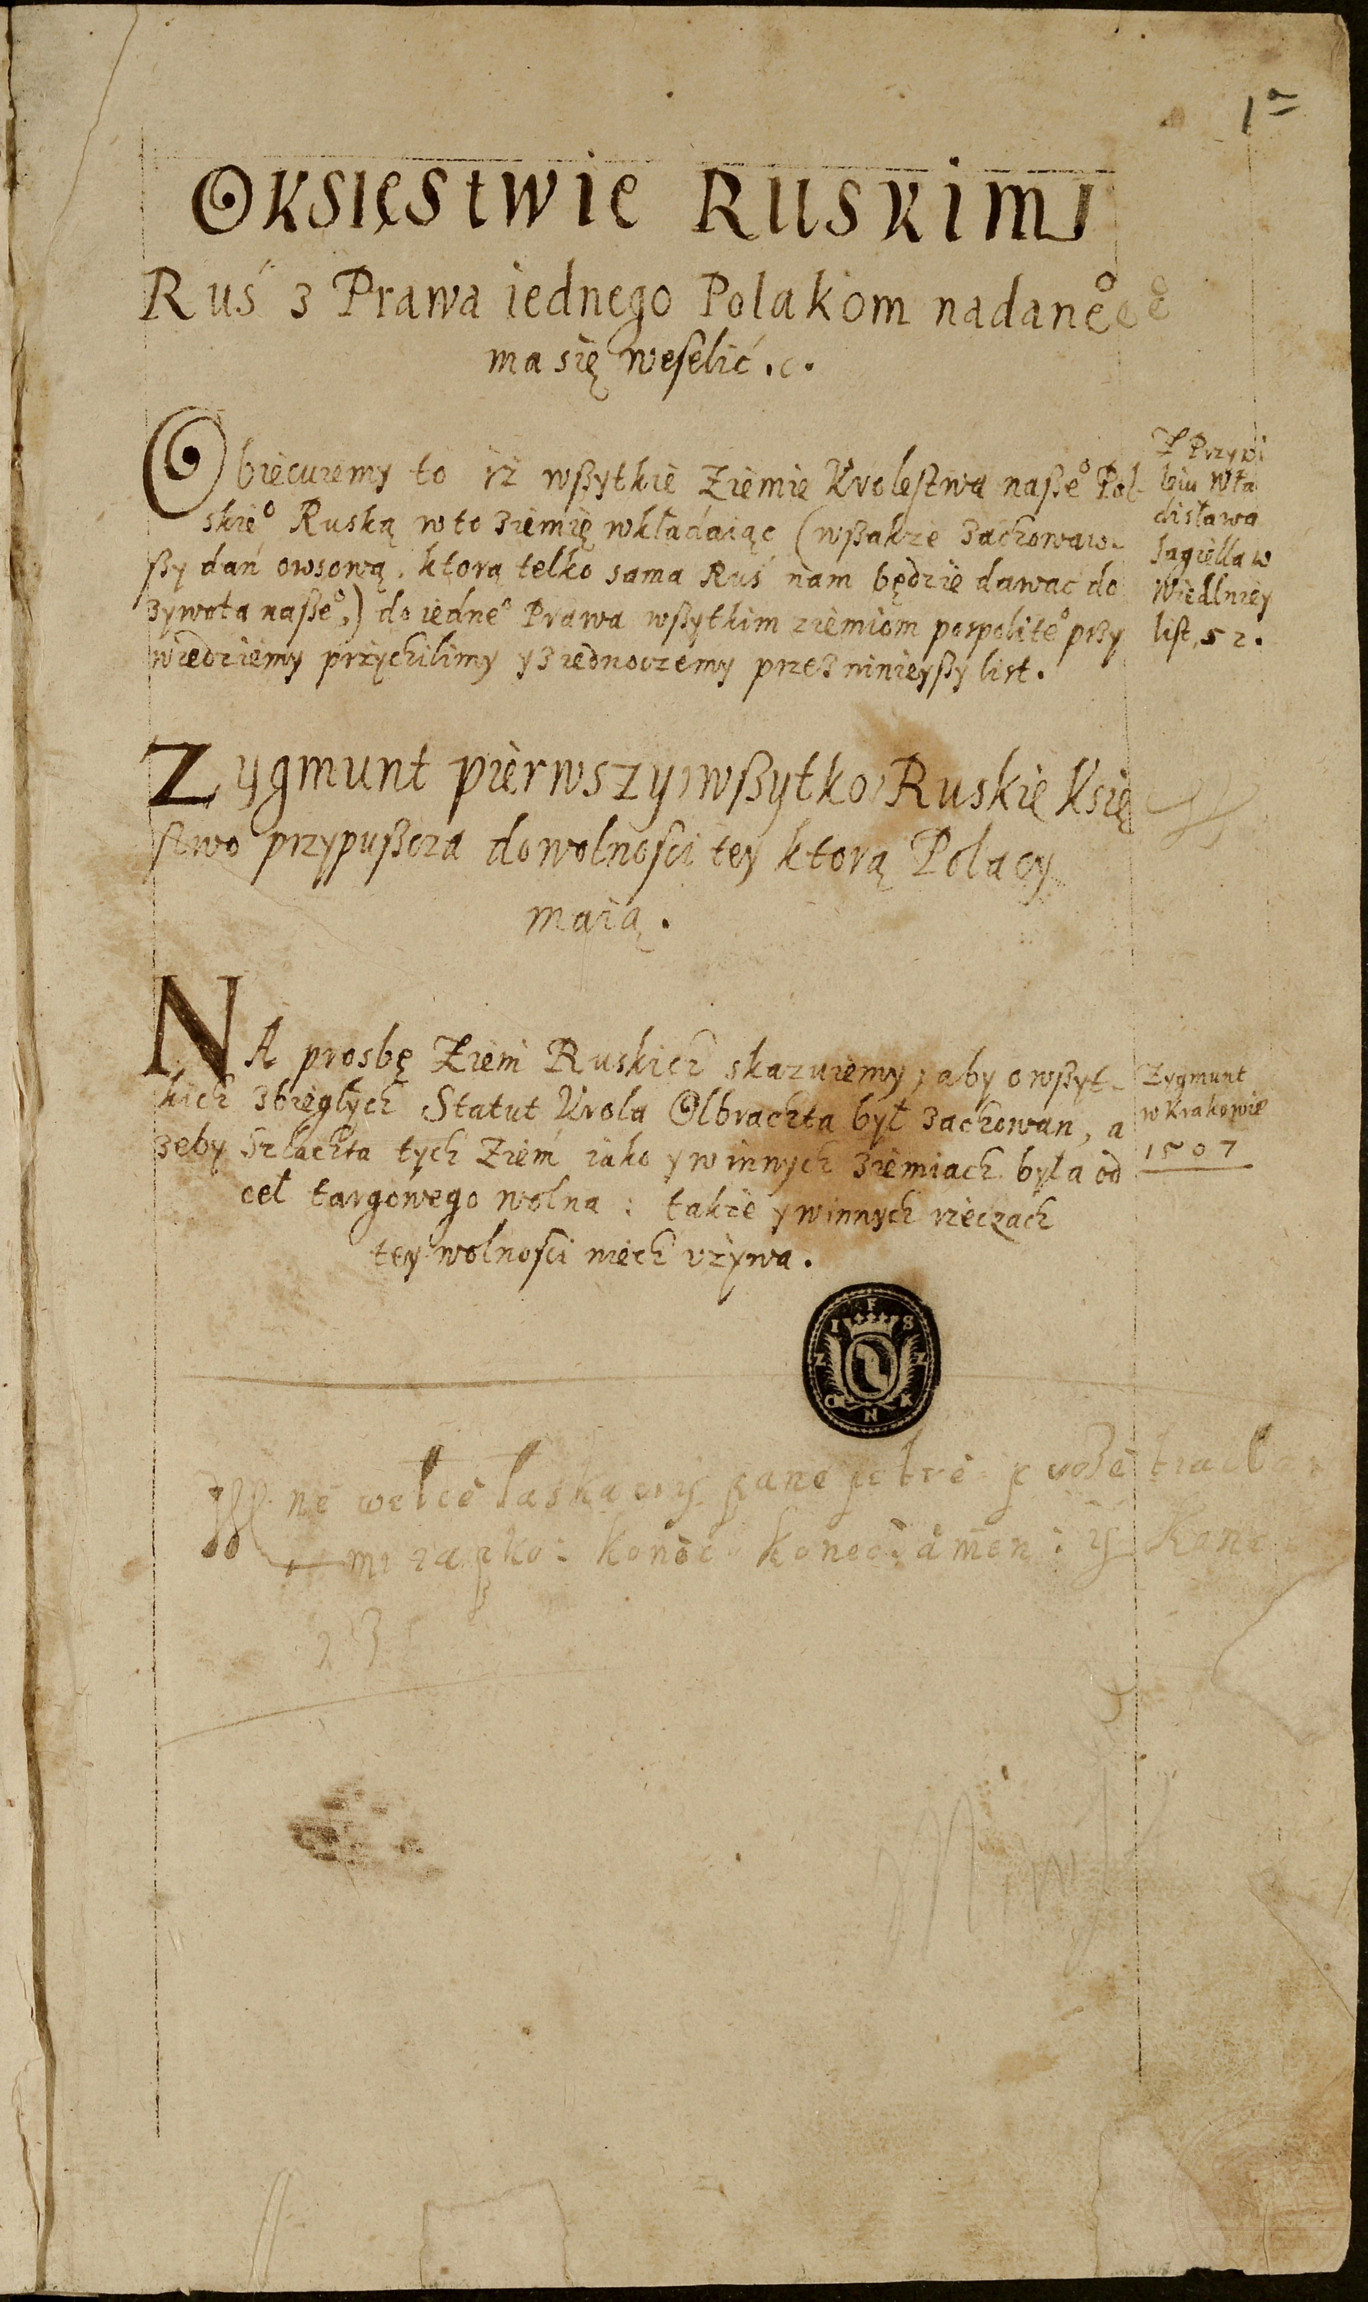 1a
O KSIĘStwie RusKim
Ruś z Prawa iednego Polakom nadaneo
ma się weselić.
Obiecuiemy to iż wßytkie Ziemie Krolestwa naßeo Pol-
skieo Ruską w to ziemię wkładaiąc (wßakże zachowaw-
ßy dań owsową, ktorą telko sama Ruś nam będzie dawać do
zywota naßeo,) do iedneo Prawa wßytkim ziemiom pospoliteo przy
wiedziemy przychilimy y ziednoczemy przez ninieyßy list.
Z Przywi
leiu Wła
disława
Jagiella w
Wiedlniey
list, 52.
Zygmunt pierwszy, wßytko Ruskie Księ
stwo przypußcza do wolności tey ktorą Polacy
maią.
NA prosbę Ziem Ruskich skazuiemy, aby o wßyt-
kich zbiegłych Statut Krola Olbrachta był zachowan, a
żeby Szlachta tych Ziem iako y w innych ziemiach była od
ceł targowego wolna: takie y winnych rzeczach
tey wolności niech używa.
Zygmunt
w Krakowie
1507
F
I S
Z Z
O K
N
ne welce łaskawy pane petre
konec konec amen